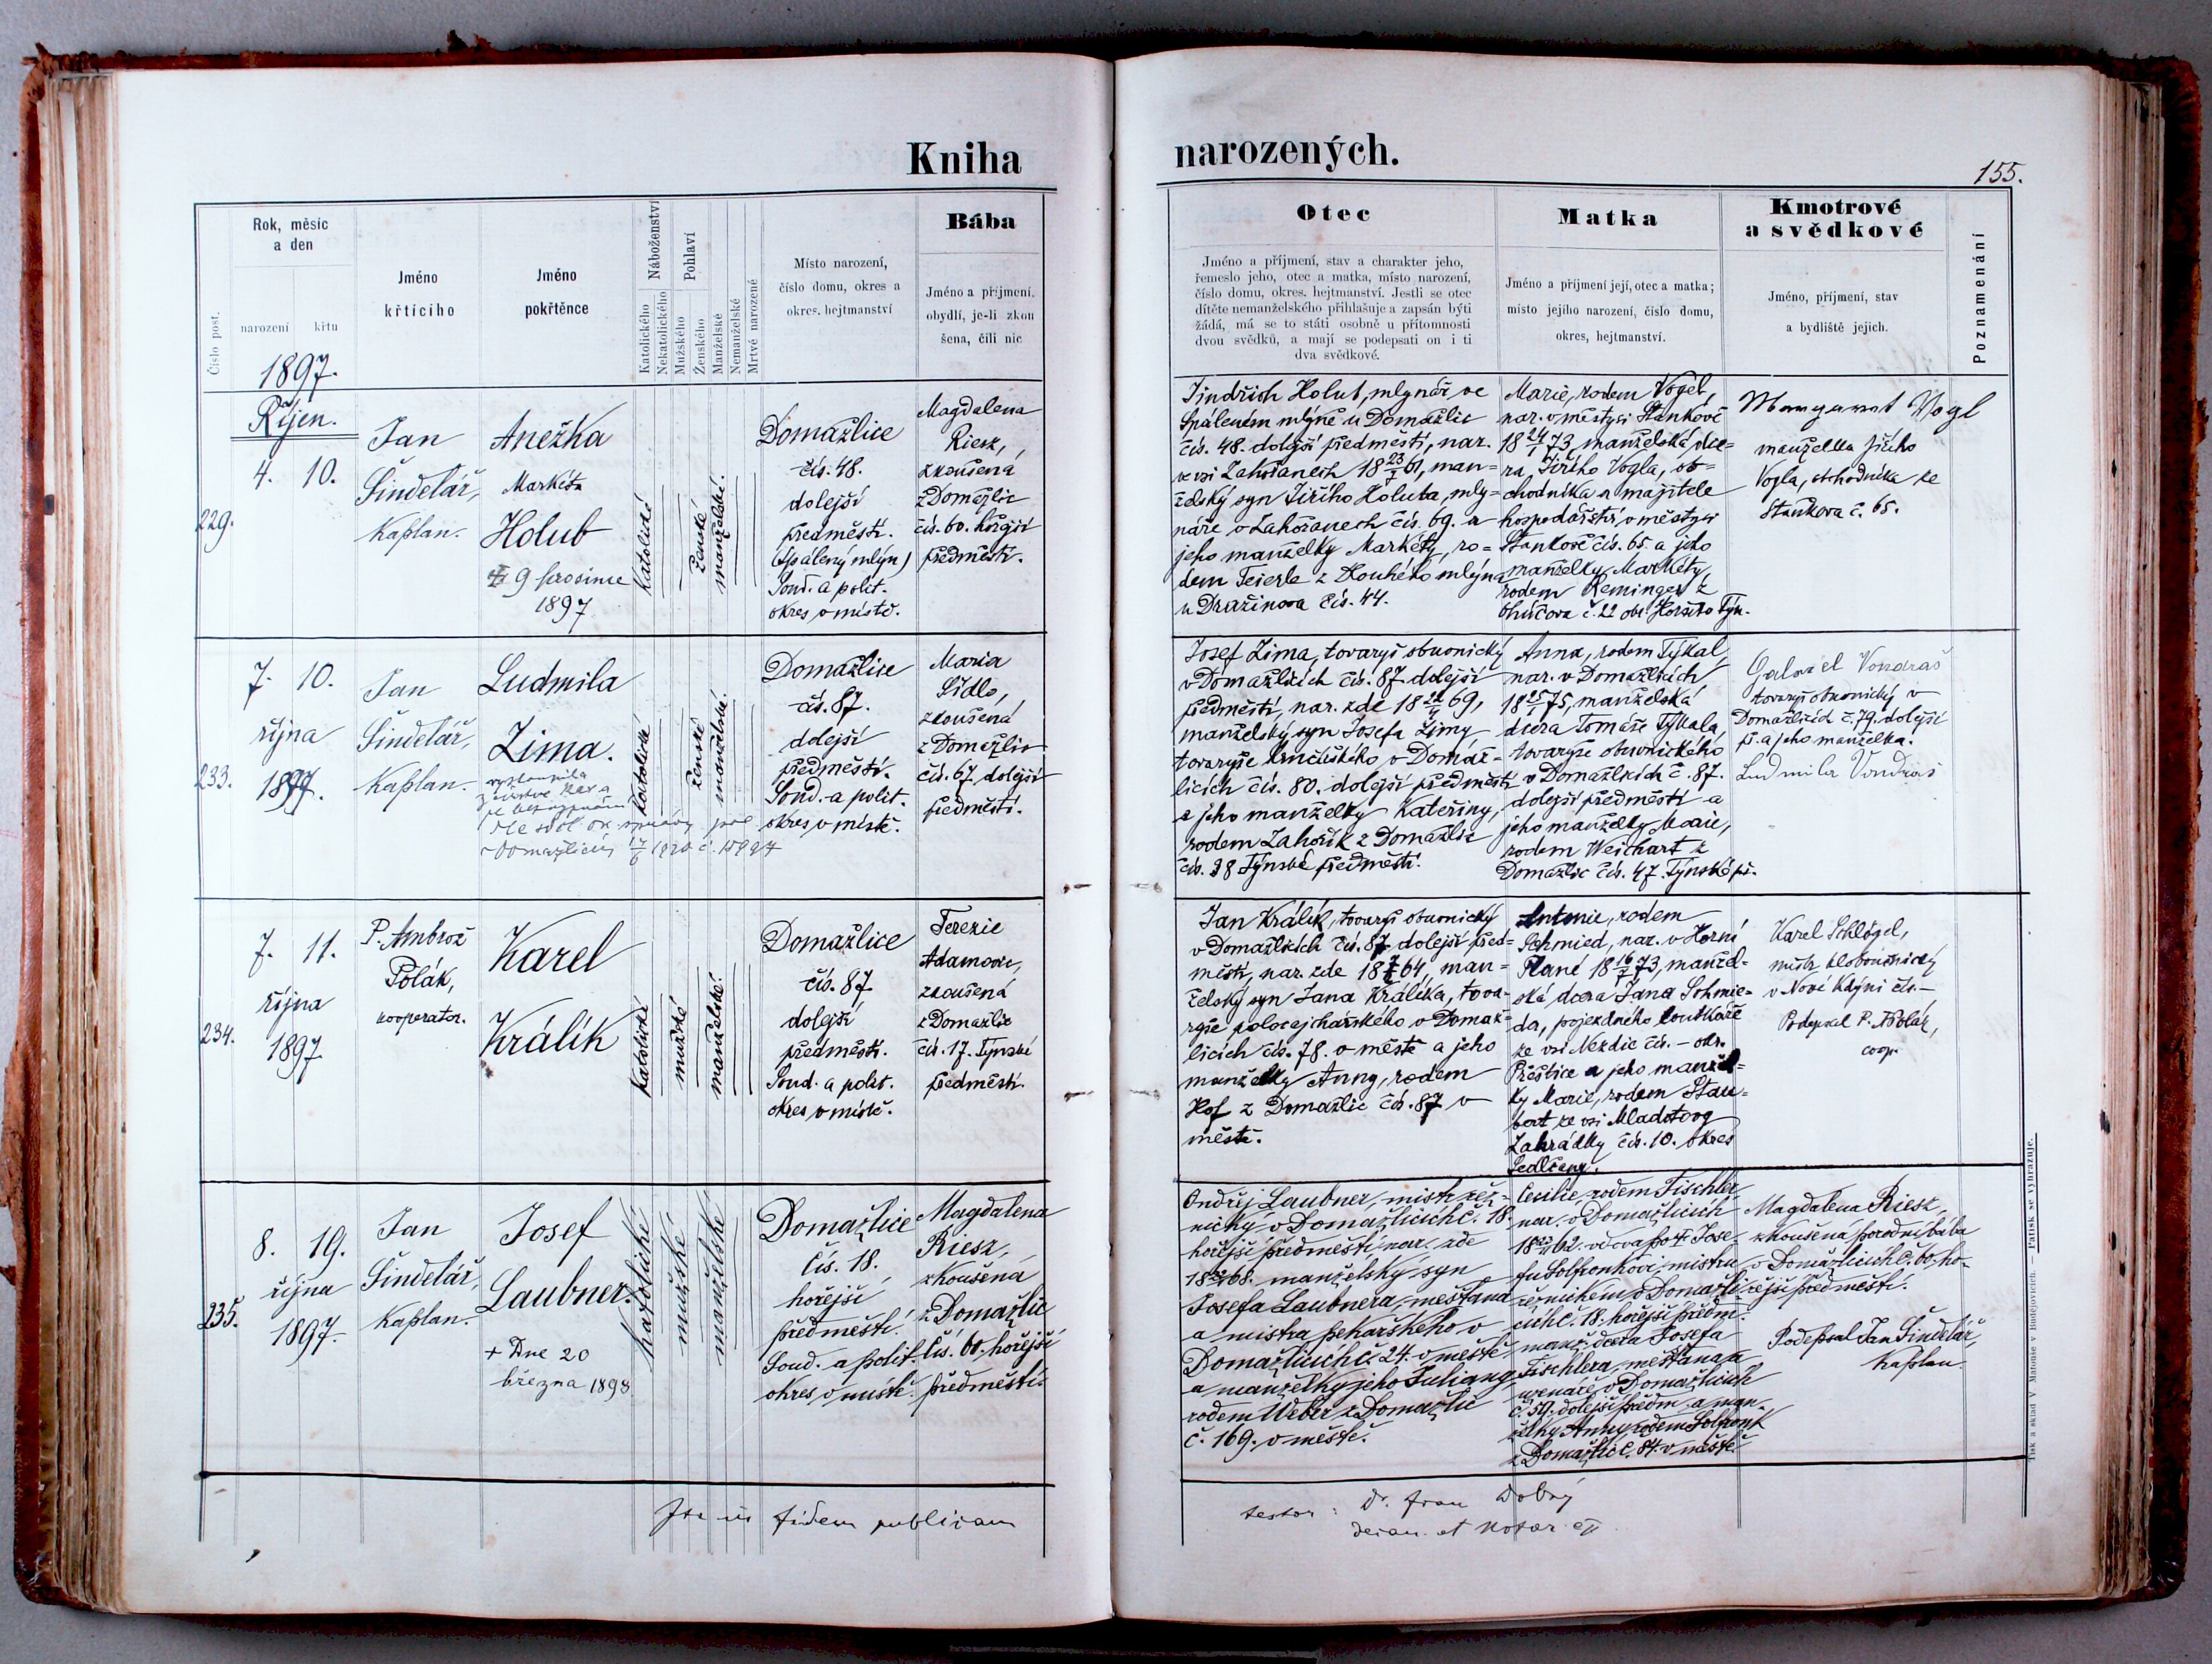 Kniha
narozených.
155.
Rok, měsíc
a den
narození
křtu
Číslo post.
Jméno
křtícího
Jméno
pokřtěnce
Náboženství
Katolického
Nekatolického
Pohlaví
Mužského
Ženského
Manželské
Nemanželské
Mrtvě narozené
Místo narození,
číslo domu, okres a
okres. hejtmanství
Bába
Jméno a příjmení,
obydlí, je-li zkou
šena, čili nic
Otec
Jméno a příjmení, stav a charakter jeho,
řemeslo jeho, otec a matka, místo narození,
číslo domu, okres. hejtmanství. Jestli se otec
dítěte nemanželského přihlašuje a zapsán býti
žádá, má se to státi osobně u přítomnosti
dvou svědků, a mají se podepsati on i ti
dva svědkové.
Matka
Jméno a příjmení její, otec a matka;
místo jejího narození, číslo domu,
okres, hejtmanství.
Kmotrové
a svědkové
Jméno, příjmení, stav
a bydliště jejich.
Poznamenání
1897.
Říjen.
229.
4. 10.
Jan
Šindelář,
Kaplan.
Anežka
Markéta
Holub
9 prosince
1897
katolické
ženské
manželské.
Domažlice
čís. 48.
dolejší
předměstí.
(Spálený mlýn)
Soud. a polit.
okres v místě.
Magdalena
Riesz,
zkoušená
z Domažlic
čís. 60. hořejší
předměstí.
Jindřich Holub, mlynář ve
Spáleném mlýně u Domažlic
čís. 48. dolejší předměstí, nar.
ve vsi Zahořanech 18 23/7 61, man=
želský syn Jiřího Holuba, mly=
náře v Zahořanech čís. 69. a
jeho manželky Markéty, ro=
dem Teierle z Dlouhého mlýna
u Dražinova čís. 44.
Marie, rodem Vogel,
nar. v městysi Stankově
18 24/1 73, manželská dce=
ra Jiřího Vogla, ob=
chodníka a majitele
hospodářství v městysi
Stankově čís. 65. a jeho
manželky Markéty
rodem Reminger z
č. 22 okr. Horšův Týn.
Margaret Vogl
manželka Jiřího
Vogla, obchodníka ze
Stankova č. 65.
233.
7. 10.
října
1897.
Jan
Šindelář,
Kaplan.
Ludmila
Zima.
vystoupila
z církve kat. a
je bez vyznání
dle sděl. ok. správy pol.
v Domažlicích 17/6 1920 č. 18924
katolické
ženské
manželské.
Domažlice
čís. 87.
dolejší
předměstí.
Soud. a polit.
okres v místě.
Maria
Sidlo,
zkoušená
z Domažlic
čís. 67. dolejší
předměstí.
Josef Zima, tovaryš obuvnický
v Domažlicích čís. 87. dolejší
předměstí, nar. zde 69,
manželský syn Josefa Zimy
tovaryše hrnčířského v Domaž=
licích čís. 80. dolejší předměstí
a jeho manželky Kateřiny,
rodem Zahořík z Domažlic
čís. 38 Týnské předměstí.
Anna, rodem Tykal,
nar. v Domažlicích
75, manželská
dcera Tomáše Tykala,
tovaryše obuvnického
v Domažlicích č. 87.
dolejší předměstí a
jeho manželky Marie,
rodem Weichart z
Domažlic čís. 47. Týnské př.
Gabriel Vondraš
tovaryš obuvnický v
Domažlicích č. 79. dolejší
př. a jeho manželka.
Ludmila Vondraš
234.
7. 11.
října
1897
P. Ambrož
Polák,
kooperator.
Karel
Králík
katolické
mužské
manželské.
Domažlice
čís. 87
dolejší
předměstí.
Soud. a polit.
okres v místě.
Terezie
Adamove,
zkoušená
z Domažlic
čís. 17. Týnské
předměstí.
Jan Králík, tovaryš obuvnický
v Domažlicích čís. 87 dolejší před=
městí, nar. zde 64, man=
želský syn Jana Králíka, tova=
ryše v Domaž=
licích čís. 78. v městě a jeho
manželky Anny, rodem
Hof z Domažlic čís. 87 v
městě.
Antonie, rodem
Schmied, nar. v Horní
Plané 18 16/7 73, manžel=
ská dcera Jana Schmie=
da, pojezdného loutkáře
ze vsi Nezdic čís. – okr.
Přeštice a jeho manžel=
ky Marie, rodem Stau=
bert ze vsi Mladotovy
Zahrádky čís. 10. okres
Sedlčany.
Karel Schlögel,
mistr kloboučnický
v Nové Kdýni čís. –
Podepsal P. A. Polák,
coop.
235.
8. 19.
října
1897.
Jan
Šindelář,
Kaplan.
Josef
Laubner.
+ Dne 20
března 1898
katolické
mužské
manželské
Domažlice
čís. 18.
hořejší
předměstí.
Soud. a polit.
okres v místě.
Magdalena
Riesz,
zkoušená
z Domažlic
čís. 60. hořejší
předměstí.
Ondřej Laubner, mistr řez=
nický v Domažlicích č. 18.
hořejší předměstí, nar. zde
68. manželský syn
Josefa Laubnera, měšťana
a mistra pekařského v
Domažlicích č. 24. v městě
a manželky jeho Juliany
rodem Weber z Domažlic
č. 169. v městě.
Cecilie, rodem Fischler,
nar. v Domažlicích
62. vdova po Jose=
fu mistru
řeznickém v Domažli=
cích č. 18. hořejší předm.
manž. dcera Josefa
Fischlera, měšťana a
uzenáře v Domažlicích
č. 50. dolejší předm. a man=
želky Anny rodem
z Domažlic č. 84. v městě
Magdalena Riesz,
zkoušená porodní bába
v Domažlicích č. 60. ho=
řejší předměstí.
Podepsal Jan Šindelář,
Kaplan.
Ita in fidem publicam
testor: Dr. Fran Dobrý
decan. et notar. ep.
Tisk a sklad V. Matouše v Budějovicích. — Patisk se vyhrazuje.